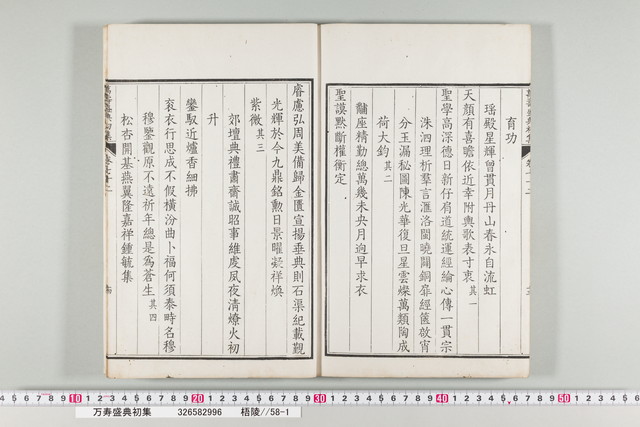 育功
瑶殿星輝曾貫月丹山春永自流虹
天顔有喜曕依近幸附輿歌表寸衷其一
聖學高深德日新仔肩道統運經綸心傳一貫宗
洙泗理析羣言滙洛閩曉闢銅扉經篋啟宵
分玉漏秘圖陳光華復旦星雲燦萬類陶成
荷大鈞其二
黼座精勤總萬幾未央月迥早求衣
聖謨黙斷權衡定
睿慮弘周美備歸金匱宣揚垂典則石渠紀載觀
光輝於今九鼎銘勲日景曜凝祥煥
紫微其三
郊壇典禮書齋誠昭事維虔夙夜清燎火初
升
鑾馭近爐香細拂
衮衣行思成不假橫汾曲卜福何須泰畤名穆
穆鑒觀原不遠祈年總是為蒼生其四
松杏開基燕翼隆嘉祥鍾毓集
万寿盛典初集 326582996 梧陵//58-1